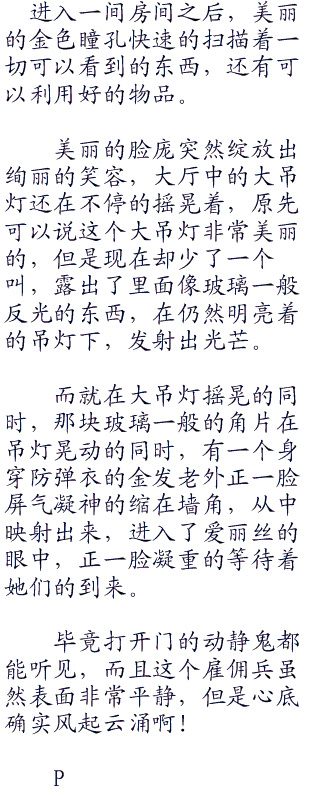 进入一间房间之后，美丽
的金色瞳孔快速的扫描着一
切可以看到的东西，还有可
以利用好的物品。
美丽的脸庞突然绽放出
绚丽的笑容，大厅中的大吊
灯还在不停的摇晃着，原先
可以说这个大吊灯非常美丽
的，但是现在却少了一个
叫，露出了里面像玻璃一般
反光的东西，在仍然明亮着
的吊灯下，发射出光芒。
而就在大吊灯摇晃的同
时，那块玻璃一般的角片在
吊灯晃动的同时，有一个身
穿防弹衣的金发老外正一脸
屏气凝神的缩在墙角，从中
映射出来，进入了爱丽丝的
眼中，正一脸凝重的等待着
她们的到来。
毕竟打开门的动静鬼都
能听见，而且这个雇佣兵虽
然表面非常平静，但是心底
确实风起云涌啊！
P